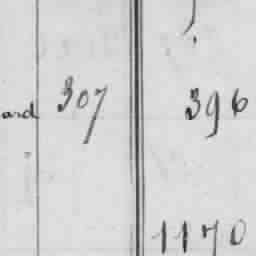 ard 307 396
1170